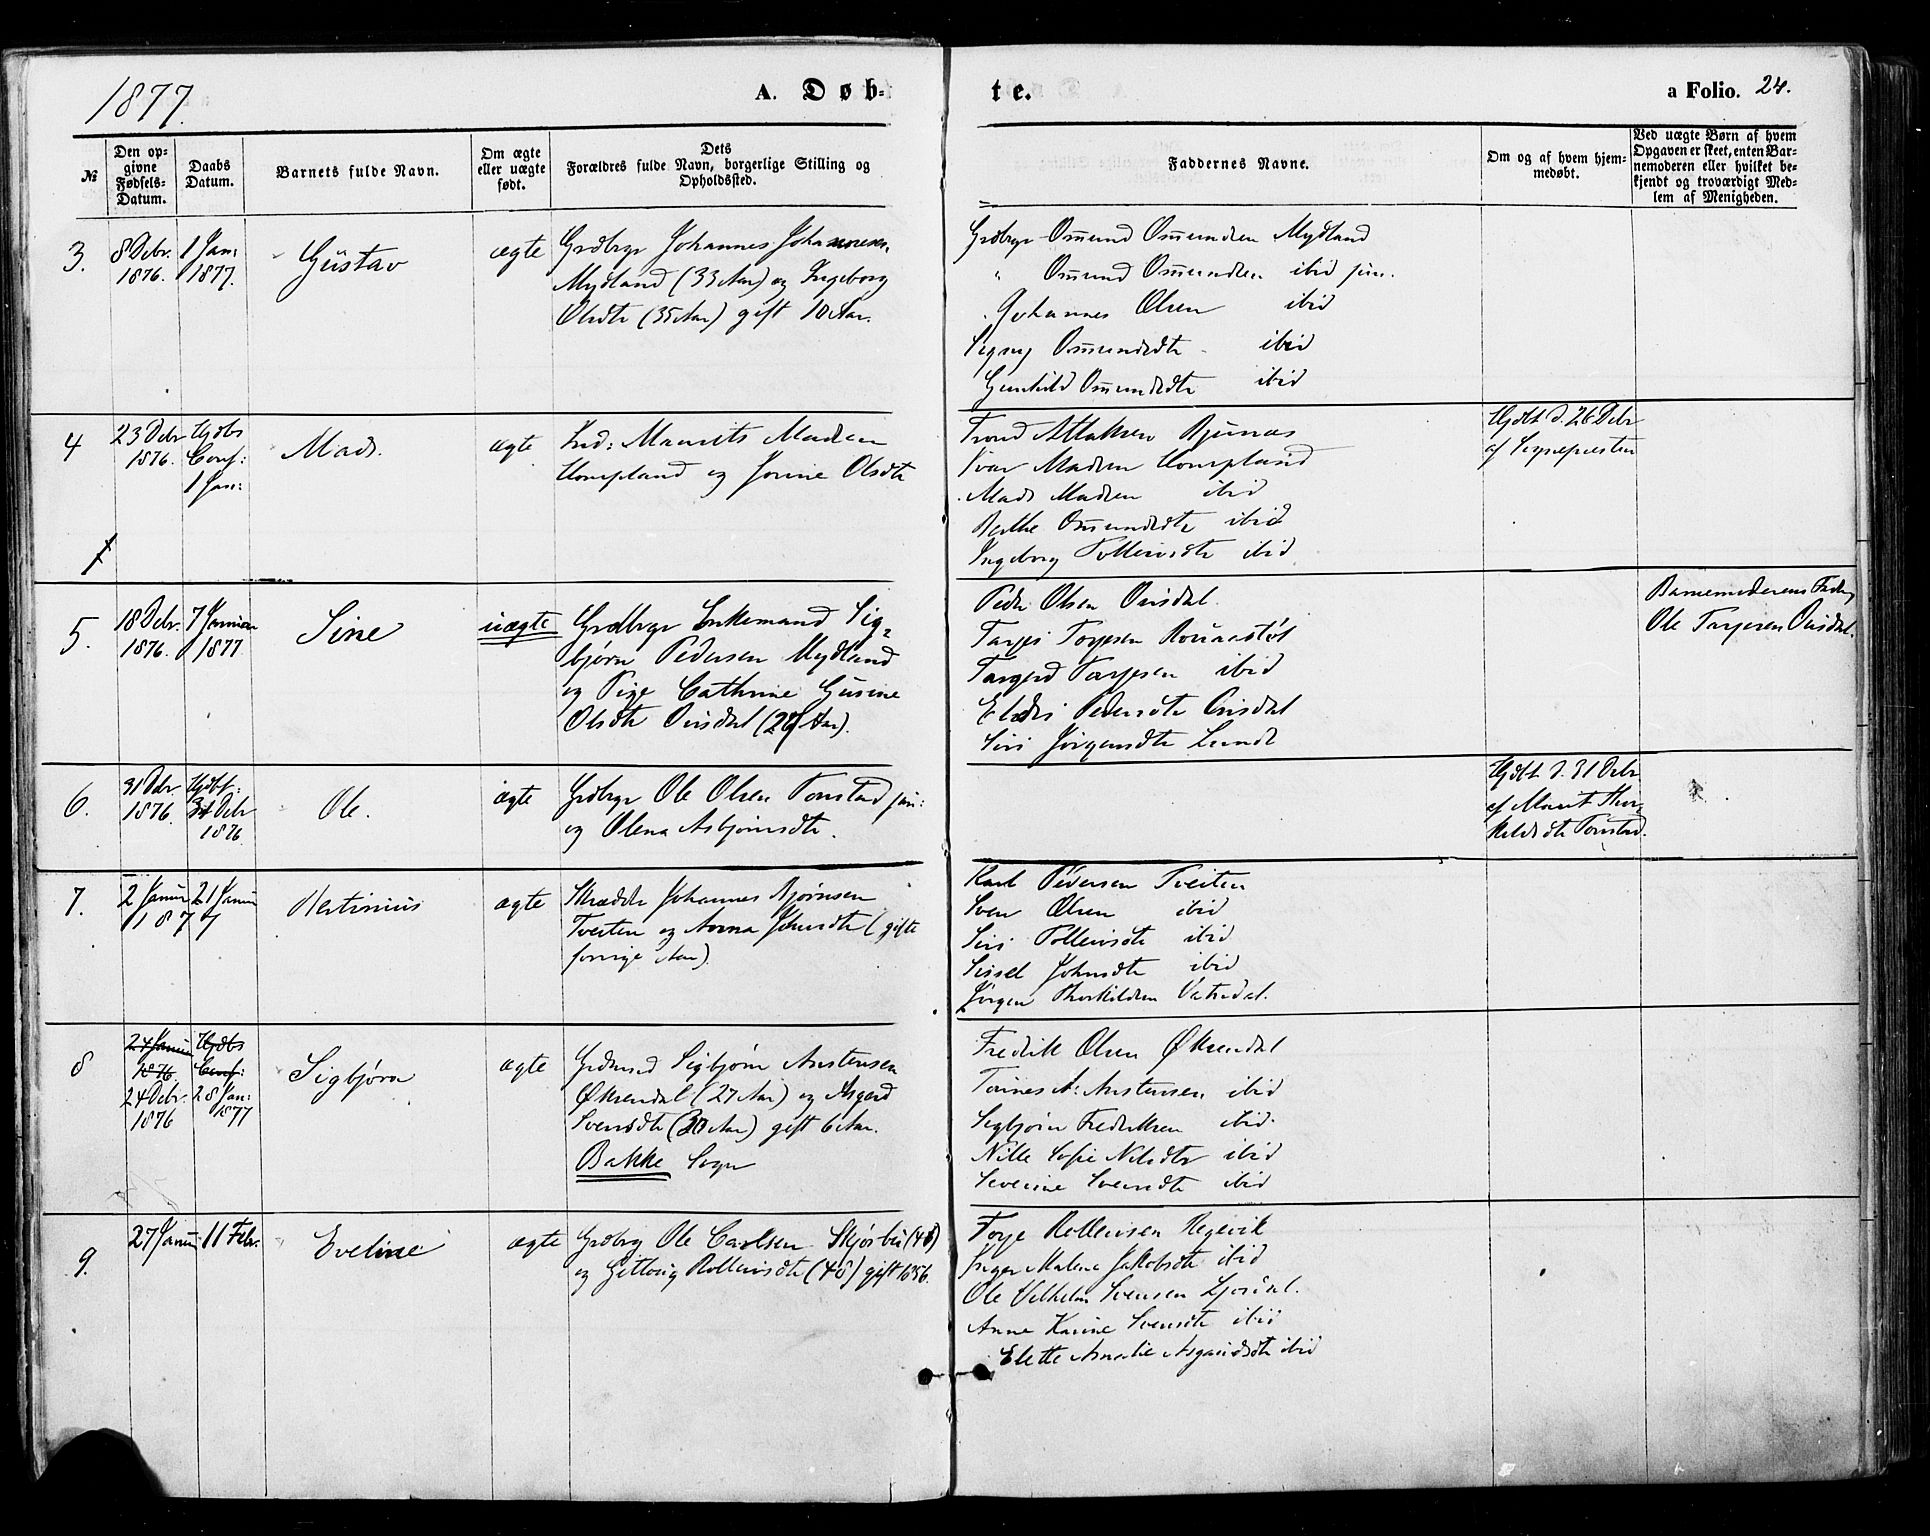 1877.
A. Døb-
te.
a Folio. 24.
№
Den op-
givne
Fødsels-
Datum.
Daabs
Datum.
Barnets fulde Navn.
Om ægte
eller uægte
født.
Dets
Forældres fulde Navn, borgerlige Stilling og
Opholdssted.
Faddernes Navne.
Om og af hvem hjem-
medøbt.
Ved uægte Børn af hvem
Opgaven er skeet, enten Bar-
nemoderen eller hvilket be-
kjendt og troværdigt Med-
lem af Menigheden.
3.
8 Debr.
1876.
1 Jan:
1877.
Gustav
ægte
Grdbrgr Johannes Johannesen
Mydland (33 Aar) og Ingeborg
Olsdtr (35 Aar) gift 10 Aar.
Grdbrgr Omund Omundsen Mydland
" Omund Omundsen ibid jun.
Johannes Olsen ibid
Signy Omundsdtr ibid
Gunhild Omundsdtr ibid
4
23 Debr
1876.
Hjdbs
Conf:
1 Jan:
Mads.
ægte
Ind: Maurits Madsen
Hompland og Jorine Olsdtr
Trond Atlaksen Bjunes
Ivar Madsen Hompland
Mads Madsen ibid
Berthe Omundsdtr ibid
Ingeborg Tollevsdtr ibid
Hjdbt d. 26 Debr
af Sognepresten
5.
18 Debr.
1876.
7 Januar
1877
Sine
uægte
Grdbrgr Enkemand Sig-
bjørn Pedersen Mydland
og Pige Cathrine Gurine
Olsdtr Ousdal (27 Aar).
Peder Olsen Ousdal.
Tarjei Torjesen
Targerd Tarjesen ibid
Eledis Pedersdtr Ousdal
Siri Jørgensdtr Lunde
Barnemoderens Fader
Ole Tarjesen Ousdal.
6.
31 Debr
1876.
Hjdbf:
31 Debr
1876.
Ole.
ægte
Grdbrgr Ole Olsen Tonstad jun:
og Olena Asbjørnsdtr.
Hjdbt d. 31 Debr
af Marit Thor-
kildsdtr Tonstad.
7.
2 Januar
1877
21 Januar
Bertinius
ægte
Skrædder Johannes Bjørnsen
Tveiten og Anna Johnsdtr (gifte
forrige Aar)
Karl Pedersen Tveiten
Sven Olsen ibid
Siri Tollevsdtr ibid
Sissel Johnsdtr ibid
Jørgen Thorkildsen Vatnedal.
8
24 Januar
1876
24 Debr.
1876
Hjdbs
Conf:
28 Jan:
1877
Sigbjørn
ægte
Grdmand Sigbjørn Anstensen
Øksendal (27 Aar) og Asgerd
Svensdtr (30 Aar) gift 6 Aar.
Bakke Sogn
Fredrik Olsen Øksendal
Tønnes A: Anstensen ibid
Sigbjørn Fredriksen ibid.
Nille Sofie Nilsdtr ibid
Severine Svensdtr ibid
9.
27 Januar
11 Febr.
Eveline
ægte
Grdbrg Ole Carlsen Skjørbu (48)
og Gitlaug Rollevsdtr (48) gift 1856.
Torje Rollevsen Regevik
Inger Malene Jakobsdtr ibid
Ole Vilhelm Svensen Ljosdal.
Anne Karine Svensdtr ibid
Elette Amalie ibid